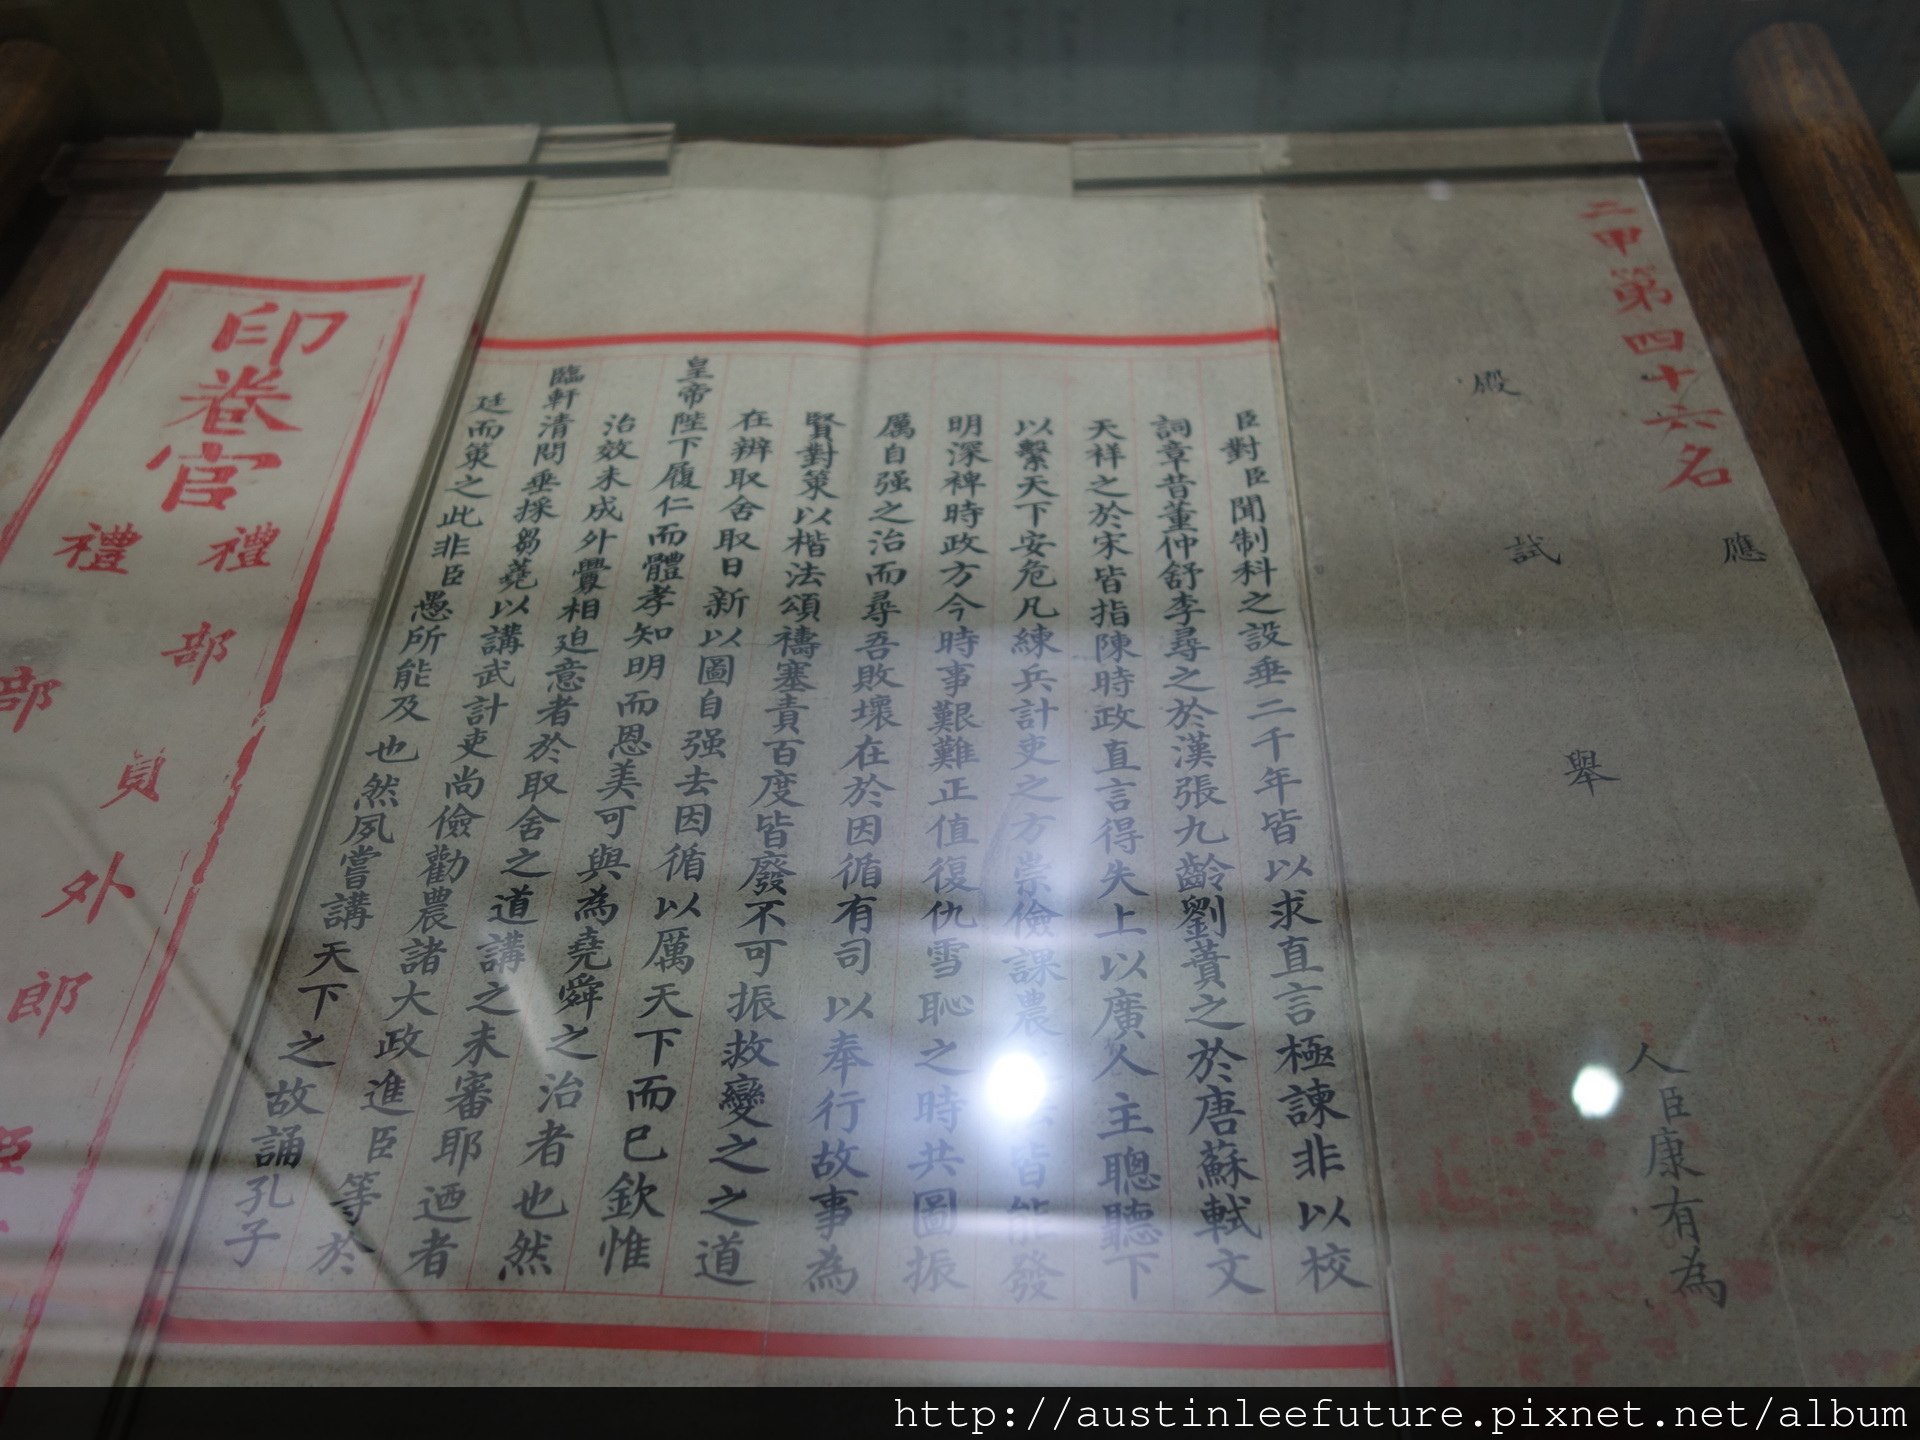 二甲第四十六名
應
殿試舉人臣康有為
臣對臣聞制科之設垂二千年皆以求直言極諫非以校
詞章昔董仲舒李尋之於漢張九齡劉蕡之於唐蘇軾文
天祥之於宋皆指陳時政直言得失上以廣人主聰聽下
以繫天下安危凡練兵計吏之方崇儉課農皆能發
明深裨時政方今時事艱難正值復仇雪恥之時共圖振
厲自强之治而尋吾敗壞在於因循有司以奉行故事為
賢對策以楷法頌禱塞責百度皆廢不可振救變之之道
在辨取舍取日新以圖自强去因循以厲天下而已欽惟
皇帝陛下履仁而體孝知明而恩美可與為堯舜之治者也然
治效未成外釁相迫意者於取舍之道講之未審耶迺者
臨軒清問垂採芻蕘以講武計吏尚儉勸農諸大政進臣等於
廷而策之此非臣愚所能及也然夙嘗講天下之故誦孔子
印卷官
禮部員外郎
禮部
http://austinleefuture.pixnet.net/album